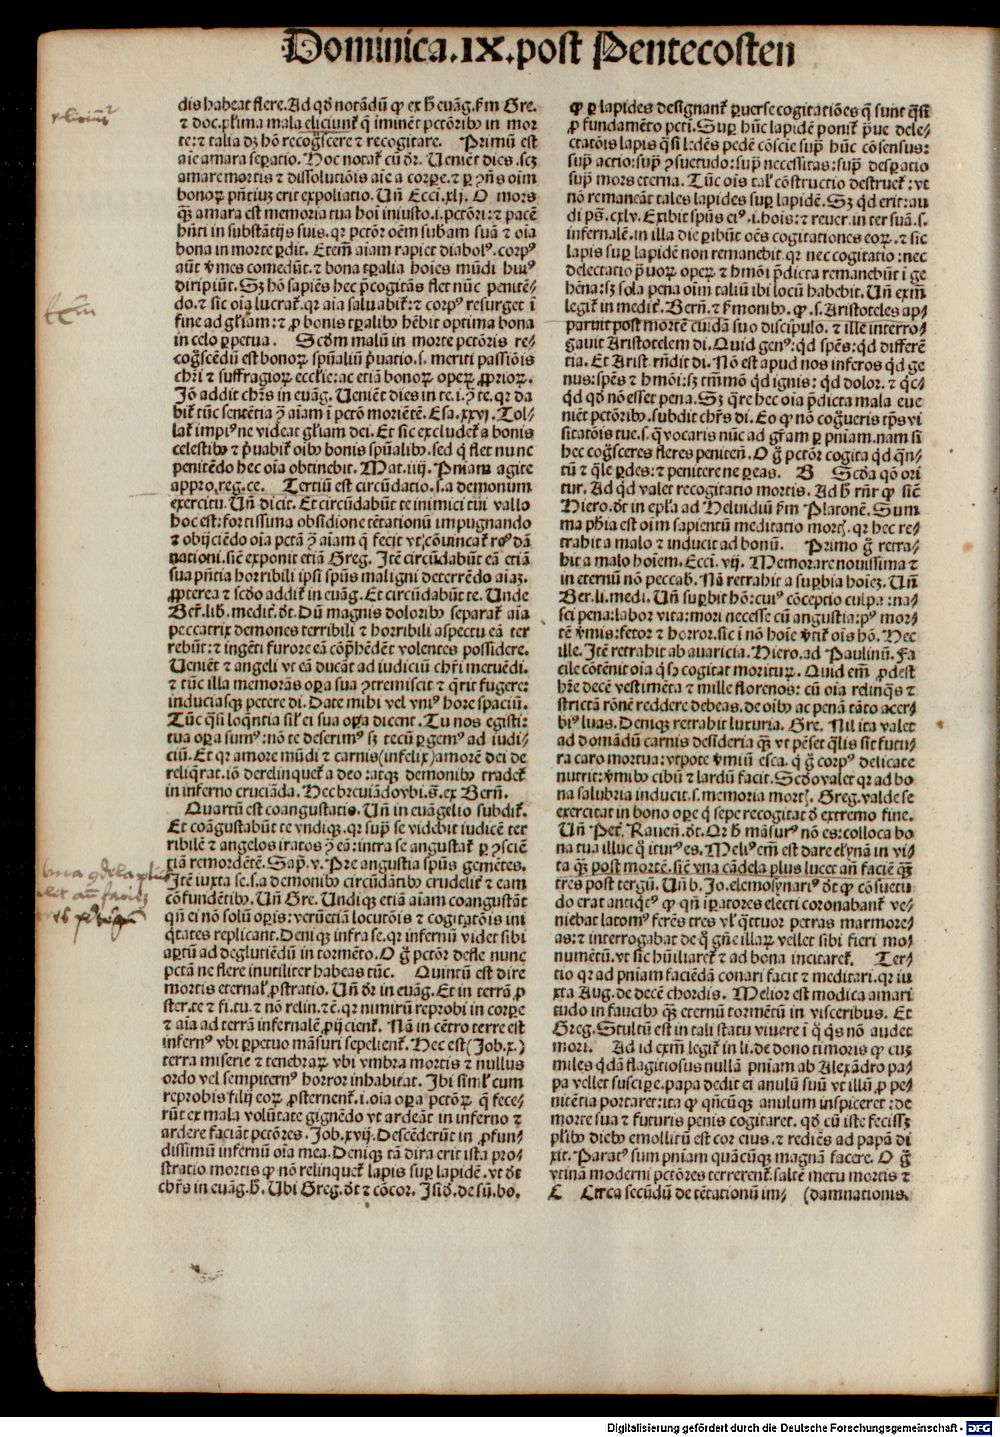 Dominica.IX.post Pentecosten
dis habeat flere. Ad qđ notādū ꝙ ex h̄ euāg. ẜm Gre.
⁊ doc. pl'ima mala eliciunt' q̄ iminēt pctōribꝰ in mor
te: ⁊ talia dꝫ hō recog̃scere ⁊ recogitare. Primū est
aīe amara sepatio. Hoc notat' cū dr̄. Uenient dies. scꝫ
amare mortis ⁊ dissolutiōis aīe a corpe. ⁊ p ɔn̄s oīm
bonoꝝ pn̄tiuꝫ erit expoliatio. Un̄ Ecci. xlj. O mors
q̄ꝫ amara est memoria tua hoī iniusto. i. pctōri: ⁊ pacē
hn̄ti in substātijs suis. qꝛ pctōr oēm subam suā ⁊ oīa
bona in morte pdit. Etem̄ aīam rapiet diabolꝰ. corpꝰ
aūt v̄mes comedūt. ⁊ bona tpalia hoīes mūdi huiꝰ
diripiūt. Sꝫ hō sapiēs hec p̄cogitās flet nūc penitē-
do. ⁊ sic oīa lucrat'. qꝛ aīa saluabit': ⁊ corpꝰ resurget ī
fine ad gl'iam: ⁊ ꝓ bonis tpalibꝰ hēbit optima bona
in celo ppetua. Scd̄m malū in morte pctōris re-
cog̃scēdū est bonoꝝ spūaliū p̄uatio. s. meriti passiōis
chr̄i ⁊ suffragioꝝ eccl'ie: ac etiā bonoꝝ opeꝝ ꝓprioꝝ.
Jō addit chr̄s in euāg. Ueniēt dies in te. i. ɔ̄ te. qꝛ da
bit' tūc sentētia ɔ̄ aīam ī pctō moriētē. Esa. xxvj. Tol-
lat' impiꝰ ne videat gl'iam dei. Et sic excludet' a bonis
celestibꝰ ⁊ p̄uabit' oībꝰ bonis spūalibꝰ. sed q̄ flet nunc
penitēdo hec oīa obtinebit. Mat. iiij. Pn̄iam agite
appro. reg. ce. Tertiū est circūdatio. s. a demonum
exercitu. Un̄ dicit. Et circūdabūt te inimici tui vallo
hoc est: fortissima obsidione tētationū impugnando
⁊ obijciēdo oīa pctā ɔ̄ aīam q̄ fecit vt ꝯuincat' rōꝰ dā
nationi. sic̄ exponit etiā Greg. Jtē circūdabūt eā etiā
sua pn̄tia horribili ipsi spūs maligni deterrēdo aīaꝫ.
ꝓpterea ⁊ scd̄o addit' in euāg. Et circūdabūt te. Unde
Ber. lib. medit. dt. Dū magnis doloribꝰ separat' aīa
peccatrix demones terribili ⁊ horribili aspectu eā ter
rebūt: ⁊ ingēti furore eā cōp̄hēdēt volentes possidere.
Ueniēt ⁊ angeli vt eā ducāt ad iudiciū chr̄i metuēdi.
⁊ tūc illa memorās opa sua ɔtremiscit ⁊ q̄rit fugere:
induciasqꝫ petere di. Date mihi vel vniꝰ hore spaciū.
Tūc q̄si loq̄ntia sil' ei sua opa dicent. Tu nos egisti:
tua opa sumꝰ: nō te deserimꝰ sꝫ tecū pgemꝰ ad iudi-
ciū. Et qꝛ amore mūdi ⁊ carnis (infelix) amorē dei de
reliq̄rat. iō derelinquet' a deo: atqꝫ demonibꝰ tradet'
in inferno cruciāda. Hec breuiādo vbi. s̄. ex Bern̄.
Quartū est coangustatis. Un̄ in euāgelio subdit'.
Et coāgustabūt te vndiqꝫ. qꝛ supꝛ se videbit iudicē ter
ribilē ⁊ angelos iratos ɔ̄ eā: intra se angustat' p ɔsciē
tiā remordētē. Sap̄. v. Pre angustia spūs gemētes.
Jtē iuxta se. s. a demonibꝰ circūdātibꝰ crudelit' ⁊ eam
cōfundētibꝰ. Un̄ Gre. Undiqꝫ etiā aīam coangustāt
qn̄ ei nō solū opis: verūetiā locutōis ⁊ cogitatōis ini
q̄tates replicant. Deniqꝫ infra se. qꝛ infernū videt sibi
aptū ad deglutiēdū in tormēto. O g̃ pctōr defle nunc
pctā ne flere inutiliter habeas tūc. Quintū est dire
mortis eternal' ꝓstratio. Un̄ dr̄ in euāg. Et in terrā ꝓ
ster. te ⁊ fi. tu. ⁊ nō relin. ⁊c̄. qꝛ nimirū reprobi in corpe
⁊ aīa ad terrā infernalē ꝓijcient'. Nā in cētro terre est
infernꝰ vbi ppetuo māsuri sepelient'. Hec est (Job. x.)
terra miserie ⁊ tenebraꝝ. vbi vmbra mortis ⁊ nullus
ordo vel sempiternꝰ horror inhabitat. Jbi siml' cum
reprobis filij eoꝝ ꝓsternent'. i. oīa opa pctōꝝ q̄ fece-
rūt ex mala volūtate gignēdo vt ardeāt in inferno ⁊
ardere faciāt pctōres. Job. xvij. Descēderūt in ꝓfun-
dissimū infernū oīa mea. Deniqꝫ tā dira erit ista pro-
stratio mortis ꝙ nō relinquet' lapis sup lapidē. vt dt
chr̄s in euāg. h̄. Ubi Greg. dt ⁊ cōcor. Jsid. de sū. bo.
ꝙ p lapides designant' puerse cogitatiōes q̄ sunt q̄si
ꝓ fundamēto pcti. Sup hūc lapidē ponit' p̄ue dele-
ctatōis lapis q̄si ledēs pedē cōscie sup hūc cōsensus:
sup actio: sup ɔsuetudo: sup necessitas: sup despatio
sup mors eterna. Tūc oīs tal' cōstructio destruet': vt
nō remaneāt tales lapides sup lapidē. Sꝫ qd erit: au
di ps̄. cxlv. Exibit spūs eiꝰ. i. hoīs: ⁊ reuer. in ter suā. s.
infernalē. in illa die pibūt oēs cogitationes eoꝝ. ⁊ sic
lapis sup lapidē non remanebit. qꝛ nec cogitatio: nec
delectatio p̄uoꝝ opeꝝ ⁊ hmōi p̄dicta remanebūt ī ge
hēna: sꝫ sola pena oīm taliū ibi locū habebit. Un̄ exm̄
legit' in medit'. Bern̄. ⁊ ẜmonibꝰ. ꝙ. s. Aristoteles ap-
paruit post mortē cuidā suo discipulo. ⁊ ille interro-
gauit Aristotelem di. Quid genꝰ: qd spēs: qd differē
tia. Et Arist. rn̄dit di. Nō est apud nos inferos qd ge
nus: spēs ⁊ hmōi: sꝫ tm̄mō qd ignis: qd dolor. ⁊ q̄c-
qd qd nō esset pena. Sꝫ q̄re hec oīa p̄dicta mala eue
niēt pctōribꝰ. subdit chr̄s di. Eo ꝙ nō cog̃ueris tps̄ vi
sitatōis tue. s. q̄ vocaris nūc ad gr̄am p pn̄iam. nam si
hec cog̃sceres fleres penitēn. O g̃ pctōr cogita qd q̄n-
tū ⁊ q̄le pdes: ⁊ penitere ne peas. B Scd̄a qō ori
tur. Ad qd valet recogitatio mortis. Ad h̄ rn̄r ꝙ sic̄
Hiero. dt in epl'a ad Heluidiū ẜm Platonē. Sum
ma ph'ia est oīm sapientū meditatio mortꝭ. qꝛ hec re-
trahit a malo ⁊ inducit ad bonū. Primo g̃ retra-
hit a malo hoīem. Ecci. vij. Memorare nouissima ⁊
in eternū nō peccab. Nā retrahit a supbia hoīeꝫ. Un̄
Ber. li. medi. Un̄ supbit hō: cuiꝰ cōceptio culpa: na-
sci pena: labor vita: mori necesse cū angustia: pꝰ mor-
tē v̄mis: fetor ⁊ horror. sic ī nō hoīe v̄tit' oīs hō. Hec
ille. Jtē retrahit ab auaricia. Hiero. ad Paulinū. Fa
cile cōtēnit oīa q̄ sꝫ cogitat morituꝝ. Quid em̄ ꝓdest
hr̄e decē vestimēta ⁊ mille florenos: cū oīa relinq̄s ⁊
strictā rōnē reddere debeas. de oībꝰ ac penā tāto acer-
biꝰ luas. Deniqꝫ retrahit luxuria. Gre. Nil ita valet
ad domādū carnis desideria q̄ꝫ vt pēset q̄lis sit futu-
ra caro mortua: vtpote v̄miū esca. q̄ g̃ corpꝰ delicate
nutrit: v̄mibꝰ cibū ⁊ lardū facit. Scd̄o valet qꝛ ad bo
na salubria inducit. s. memoria mortꝭ. Greg. valde se
exercitat in bono ope q̄ sepe recogitat d̄ extremo fine.
Un̄ Pet'. Rauen̄. dt. Qꝛ h̄ māsurꝰ nō es: colloca bo
na tua illuc q̄ iturꝰ es. Meliꝰ em̄ est dare elynā in vi
ta q̄ꝫ post mortē. sic̄ vna cādela plus lucet an̄ faciē q̄ꝫ
tres post tergū. Un̄ b. Jo. elemosynariꝰ dt ꝙ cōsuetu
do erat antiq̄tꝰ ꝙ qn̄ ipatores electi coronabant' ve-
niebat latomꝰ ferēs tres vl' q̄ttuor petras marmore-
as: ⁊ interrogabat de q̄ gn̄e illaꝝ vellet sibi fieri mo-
numētū. vt sic hūiliaret' ⁊ ad bona incitaret'. Ter-
tio qꝛ ad pn̄iam faciēdā conari facit ⁊ meditari. qꝛ iu
xta Aug. de decē chordis. Melior est modica amari
tudo in faucibꝰ q̄ꝫ eternū tormētū in visceribus. Et
Greg. Stultū est in tali statu viuere ī q̄ q̄s nō audet
mori. Ad id exm̄ legit' in li. de dono timoris ꝙ cuꝫ
miles q̄dā flagitiosus nullā pn̄iam ab Alexādro pa-
pa vellet suscipe. papa dedit ei anulū suū vt illū ꝓ pe-
nitētia portaret: ita ꝙ qn̄cūqꝫ anulum inspiceret: de
morte sua ⁊ futuris penis cogitaret. qd cū iste fecissꝫ
pl'ibꝰ diebꝰ emollitū est cor eius. ⁊ rediēs ad papā di
xit. Paratꝰ sum pn̄iam quācūqꝫ magnā facere. O g̃
vtinā moderni pctōres terrerent' saltē metu mortis ⁊
C Circa secūdū de tētationū im- (damnationis.
Digitalisierung gefördert durch die Deutsche Forschungsgemeinschaft - DFG